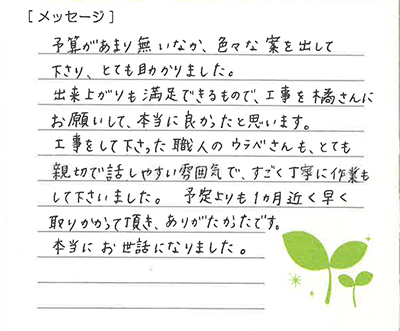 [メッセージ]
予算があまり無いなか、色々な案を出して
下さり、とても助かりました。
出来上がりも満足できるもので、工事を橘さんに
お願いして、本当に良かったと思います。
工事をして下さった職人のウラベさんも、とても
親切で話しやすい雰囲気で、すごく丁寧に作業も
して下さいました。 予定よりも1カ月近く早く
取りかかって頂き、ありがたかったです。
本当にお世話になりました。